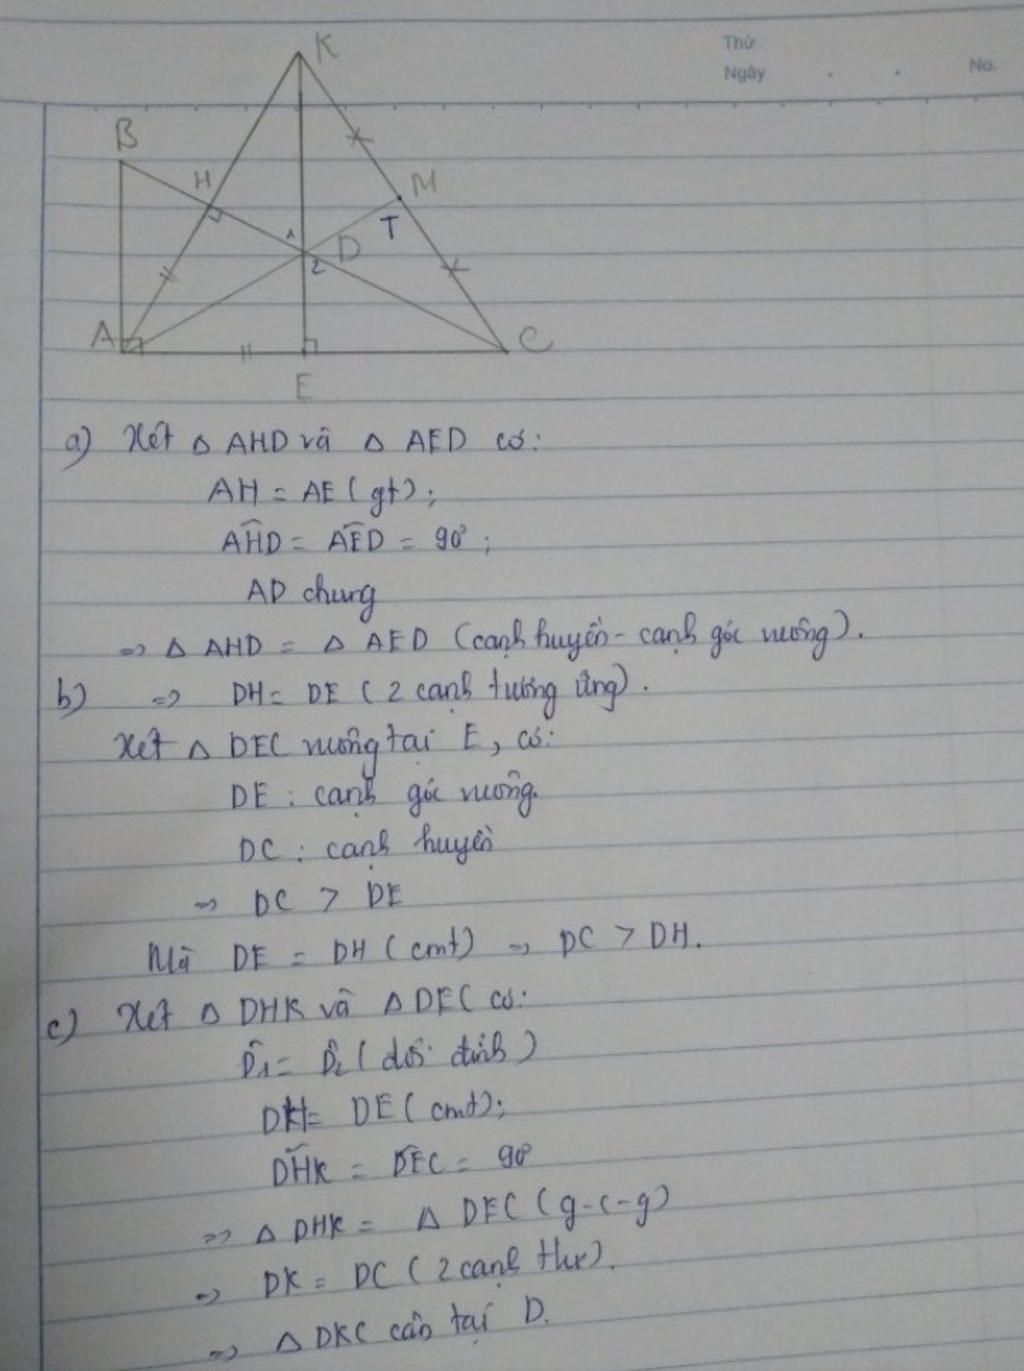 Thứ
Ngày . . No.
K
B
H
M
1
T
D
2
A
C
E
a) Xét △ AHD và △ AED có:
AH = AE (gt);
AHD = AED = 90°;
AD chung
=> △ AHD = △ AED (cạnh huyền - cạnh góc vuông).
b) => DH = DE (2 cạnh tương ứng).
Xét △ DEC vuông tại E, có:
DE : cạnh góc vuông.
DC : cạnh huyền
=> DC > DE
Mà DE = DH (cmt) => DC > DH.
c) Xét △ DHK và △ DEC có:
D̂1 = D̂2 (đối đỉnh)
DH = DE (cmt);
DHK = DEC = 90°
=> △ DHK = △ DEC (g-c-g)
=> DK = DC (2 cạnh thư).
=> △ DKC cân tại D.